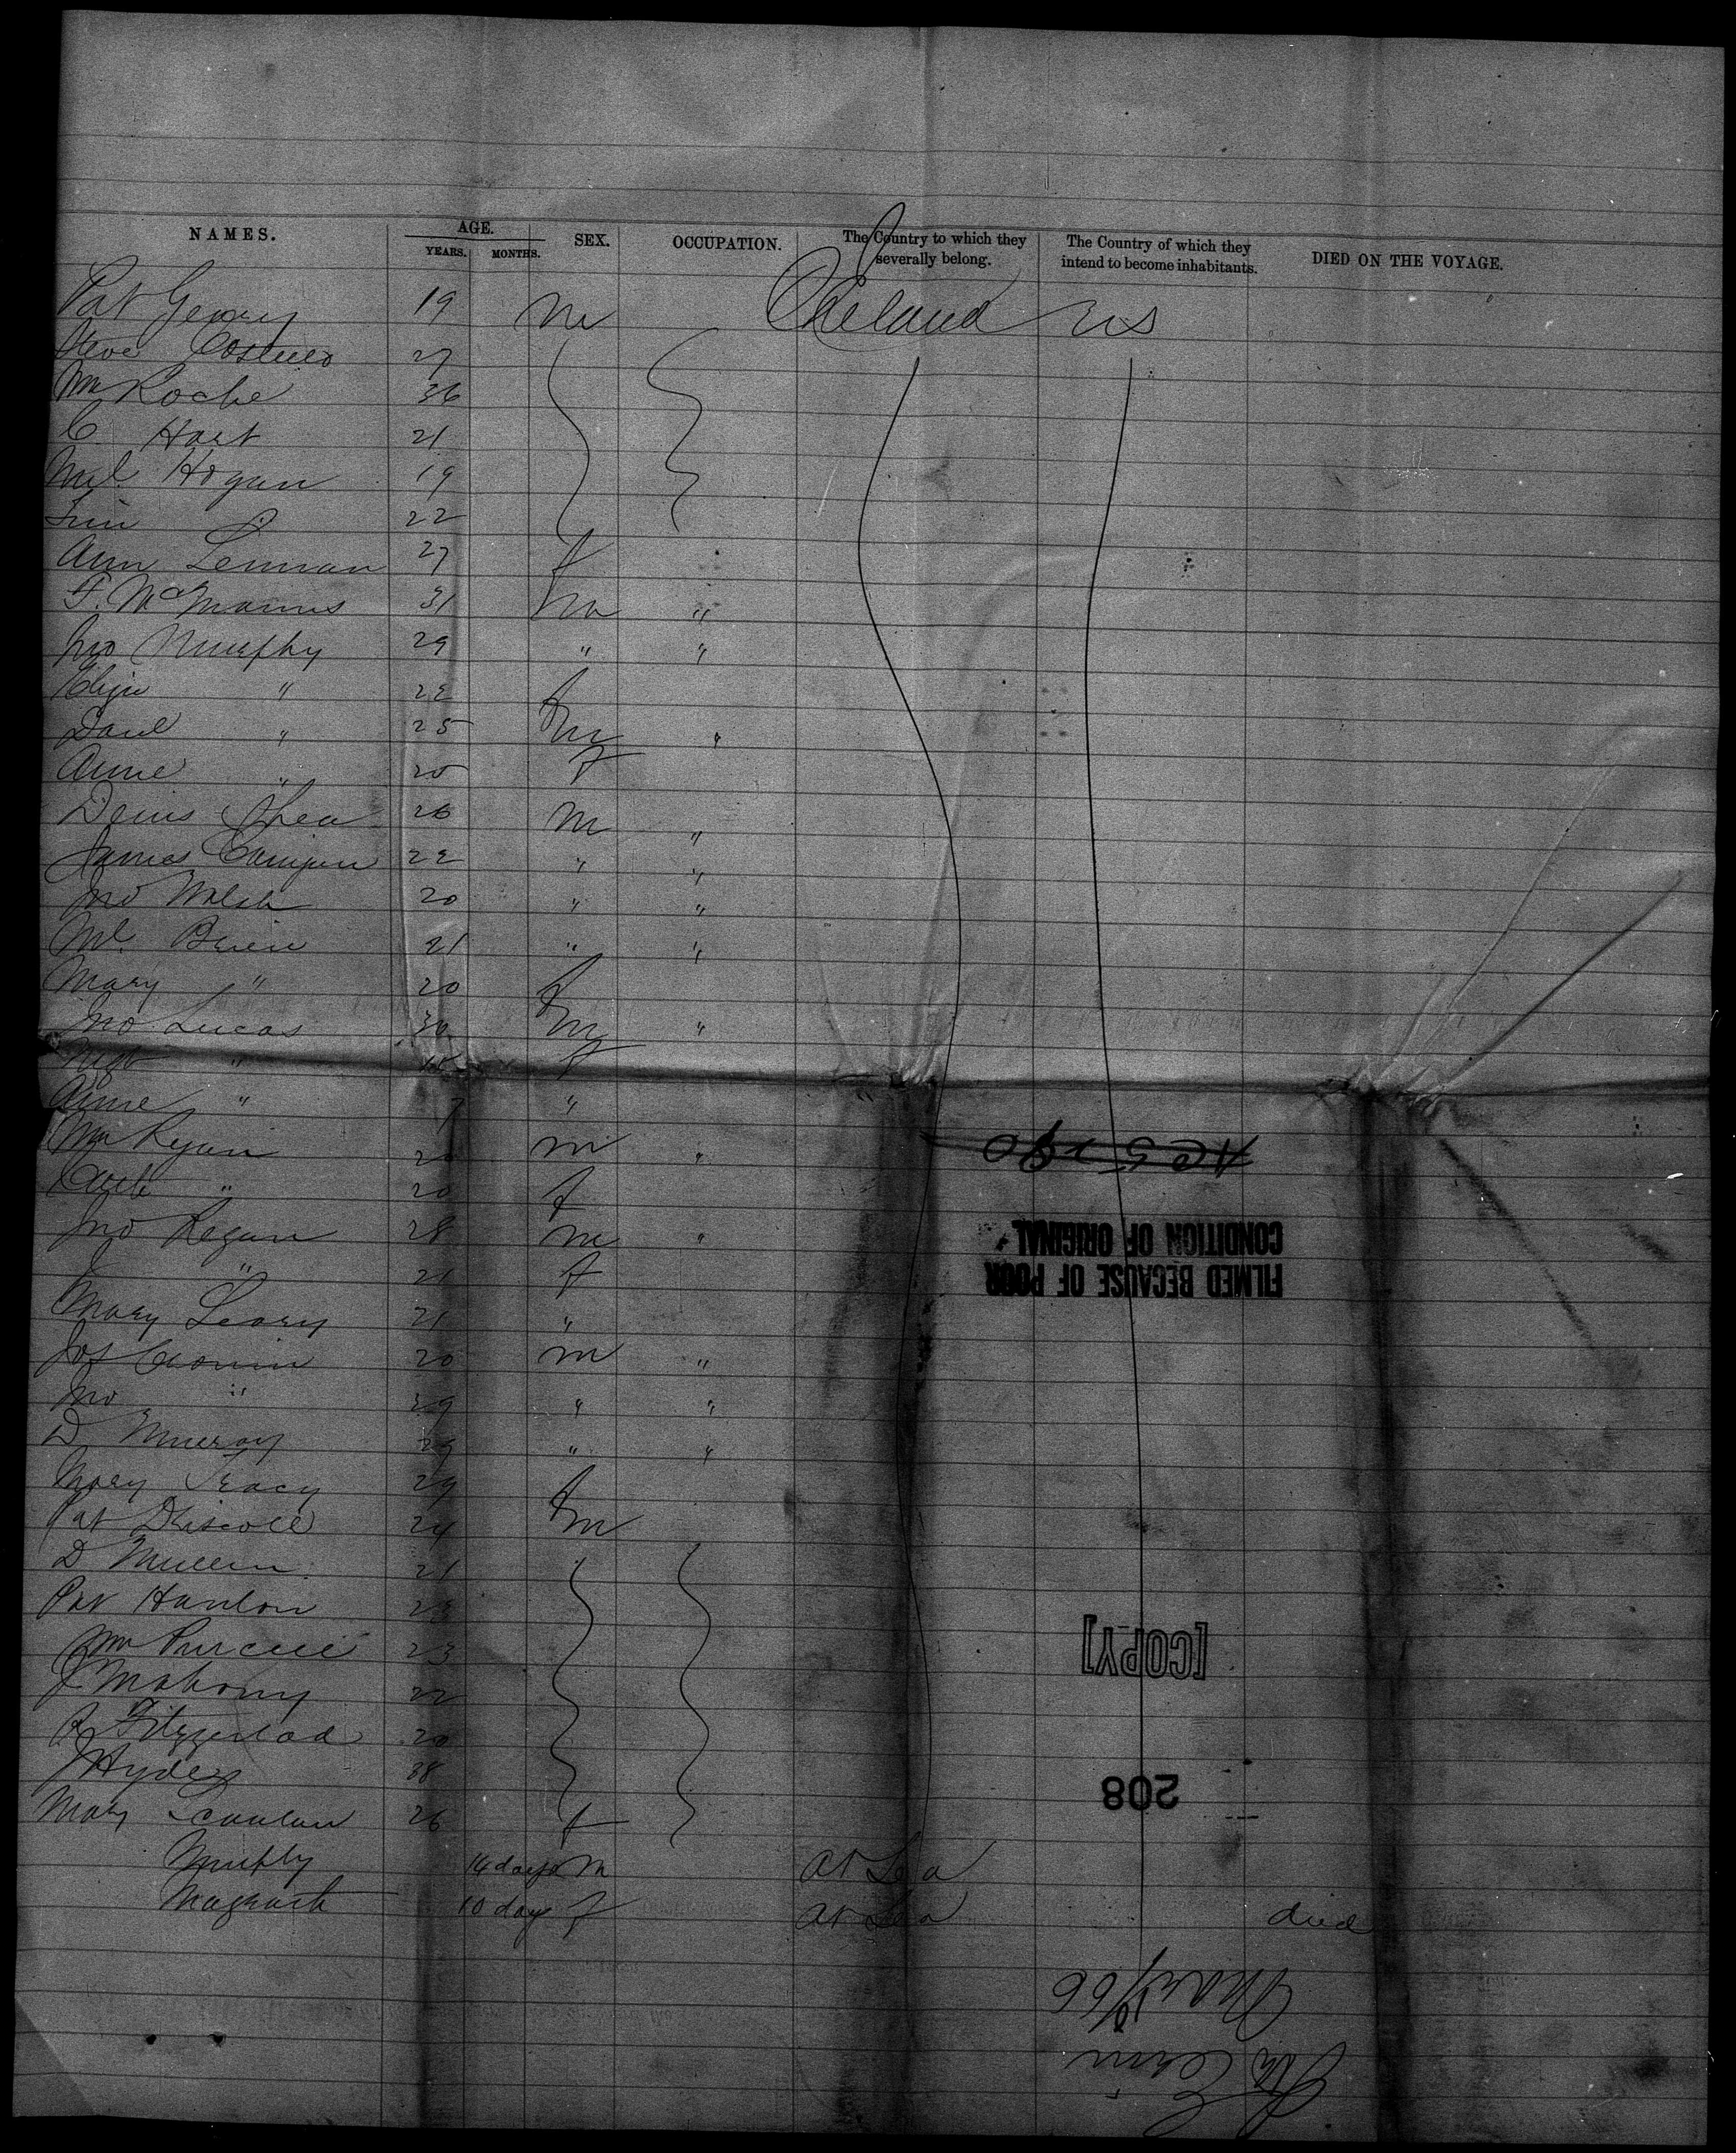 NAMES. AGE. SEX. OCCUPATION. The Country to which they severally belong. The Country of which they intend to become inhabitants. DIED ON THE VOYAGE.
YEARS. MONTHS.
Pat 19 m Ireland US
Steve Costello 27
Wm Roche 36
C Hart 21
Ml Hogan 19
Tim 22
Ann Lennon 27 f
F. McManus 31 m "
Jno Murphy 29 " "
Eliza " 22 f
Danl " 25 m "
Anne " 20 f
Denis Shea 26 m "
James 22 " "
Jno Walsh 20 " "
Ml. Brien 21 " "
Mary " 20 f
Jno Lucas 30 m "
Mgt " f
Anne " 7 "
Wm Ryan 20 m "
Cath " 20 f
Jno Regan 28 m "
" 21 f
Mary Leary 21 "
Jas Cronin 20 m "
Jno " 39 " "
D Murray 29 " "
Mary Tracy 29 f
Pat Driscoll 24 m
D Mullin 21
Pat Hanlon 23
Wm Purcell 23
J Mahony 22
R Fitzgerlad 20
J Hydes 38
Mary Scanlan 26 f
Murphy 14 days m At Sea
Magrath 10 days f At Sea died
CONDITION OF ORIGINAL
FILMED BECAUSE OF POOR
[COPY]
208
Str Erin